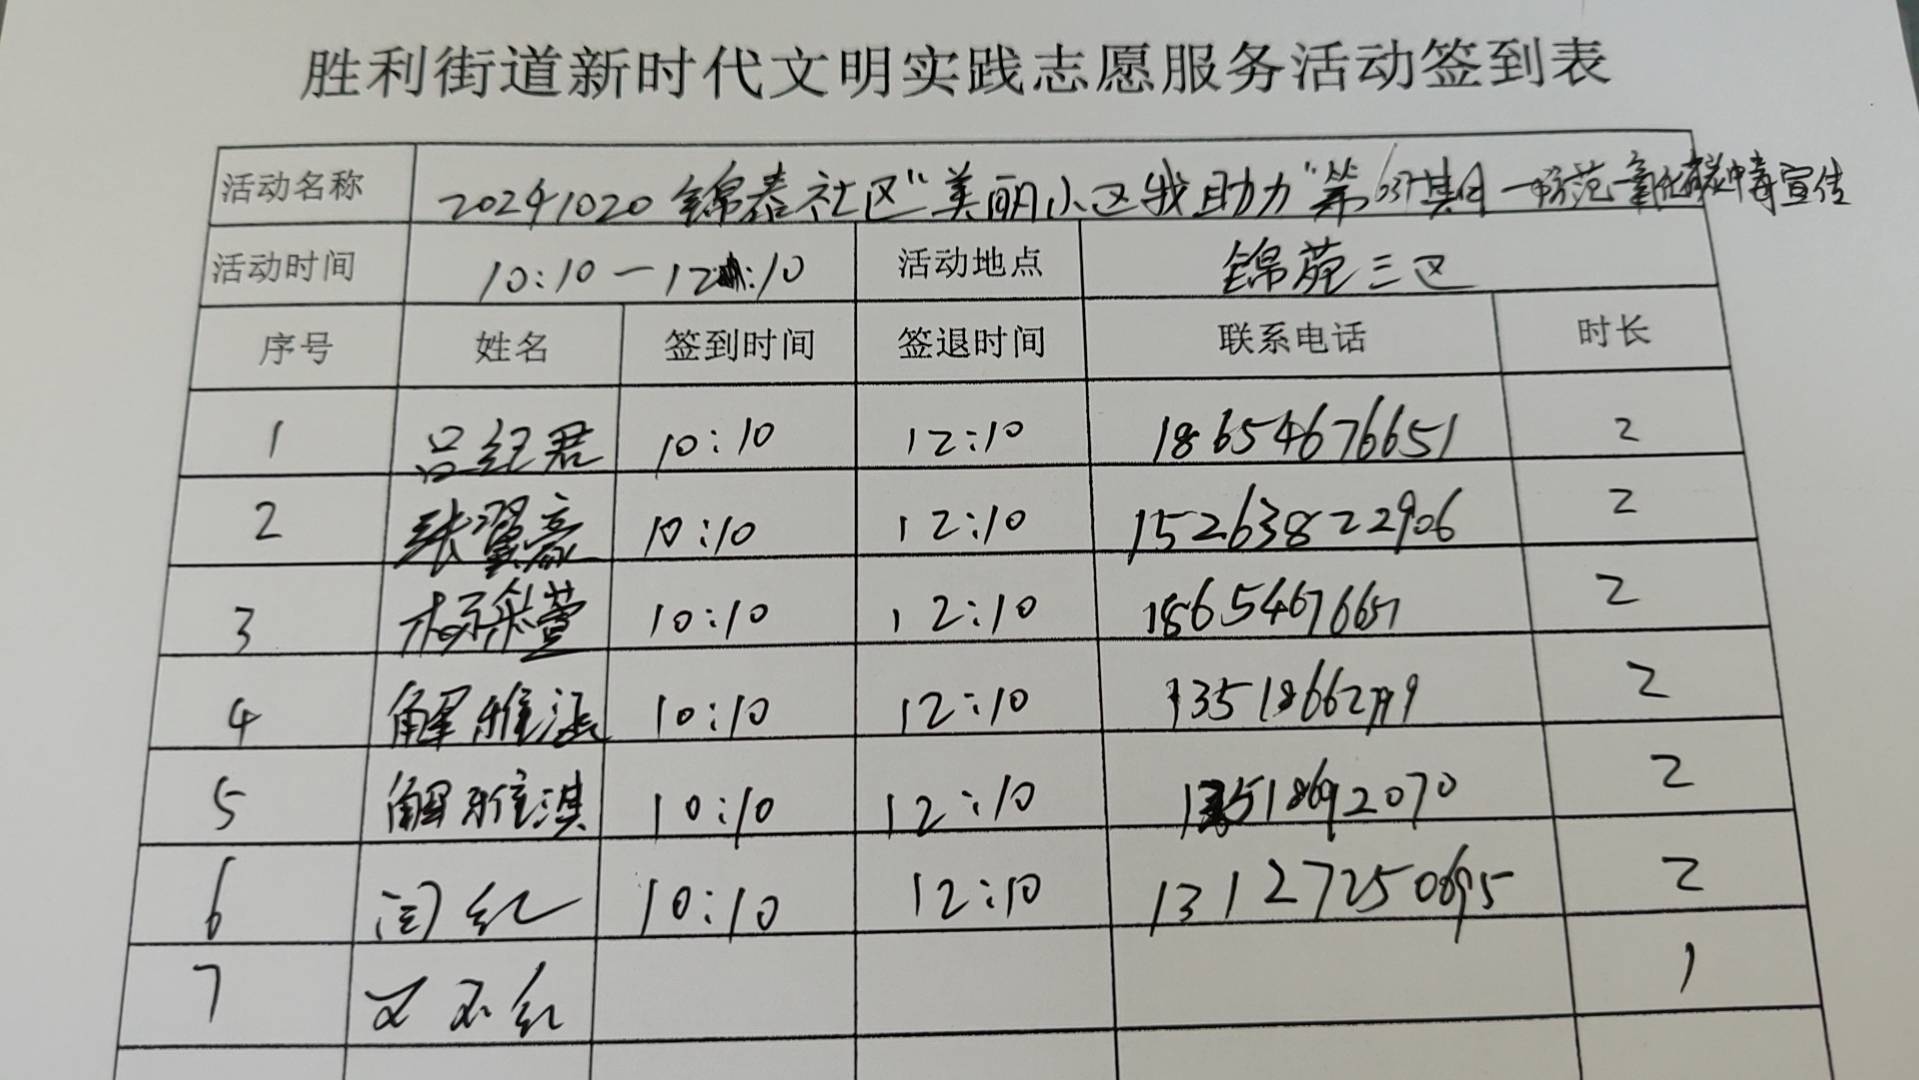 胜利街道新时代文明实践志愿服务活动签到表
活动名称 20241020锦泰社区"美丽小区我助力"第637期—防范一氧化碳中毒宣传
活动时间 10:10—12:10 活动地点 锦苑三区
序号 姓名 签到时间 签退时间 联系电话 时长
1 吕纪君 10:10 12:10 18654676651 2
2 张翼豪 10:10 12:10 15263822906 2
3 杨采萱 10:10 12:10 2
4 解雅涵 10:10 12:10 2
5 解雅淇 10:10 12:10 13518692070 2
6 闫红 10:10 12:10 2
7 红 1